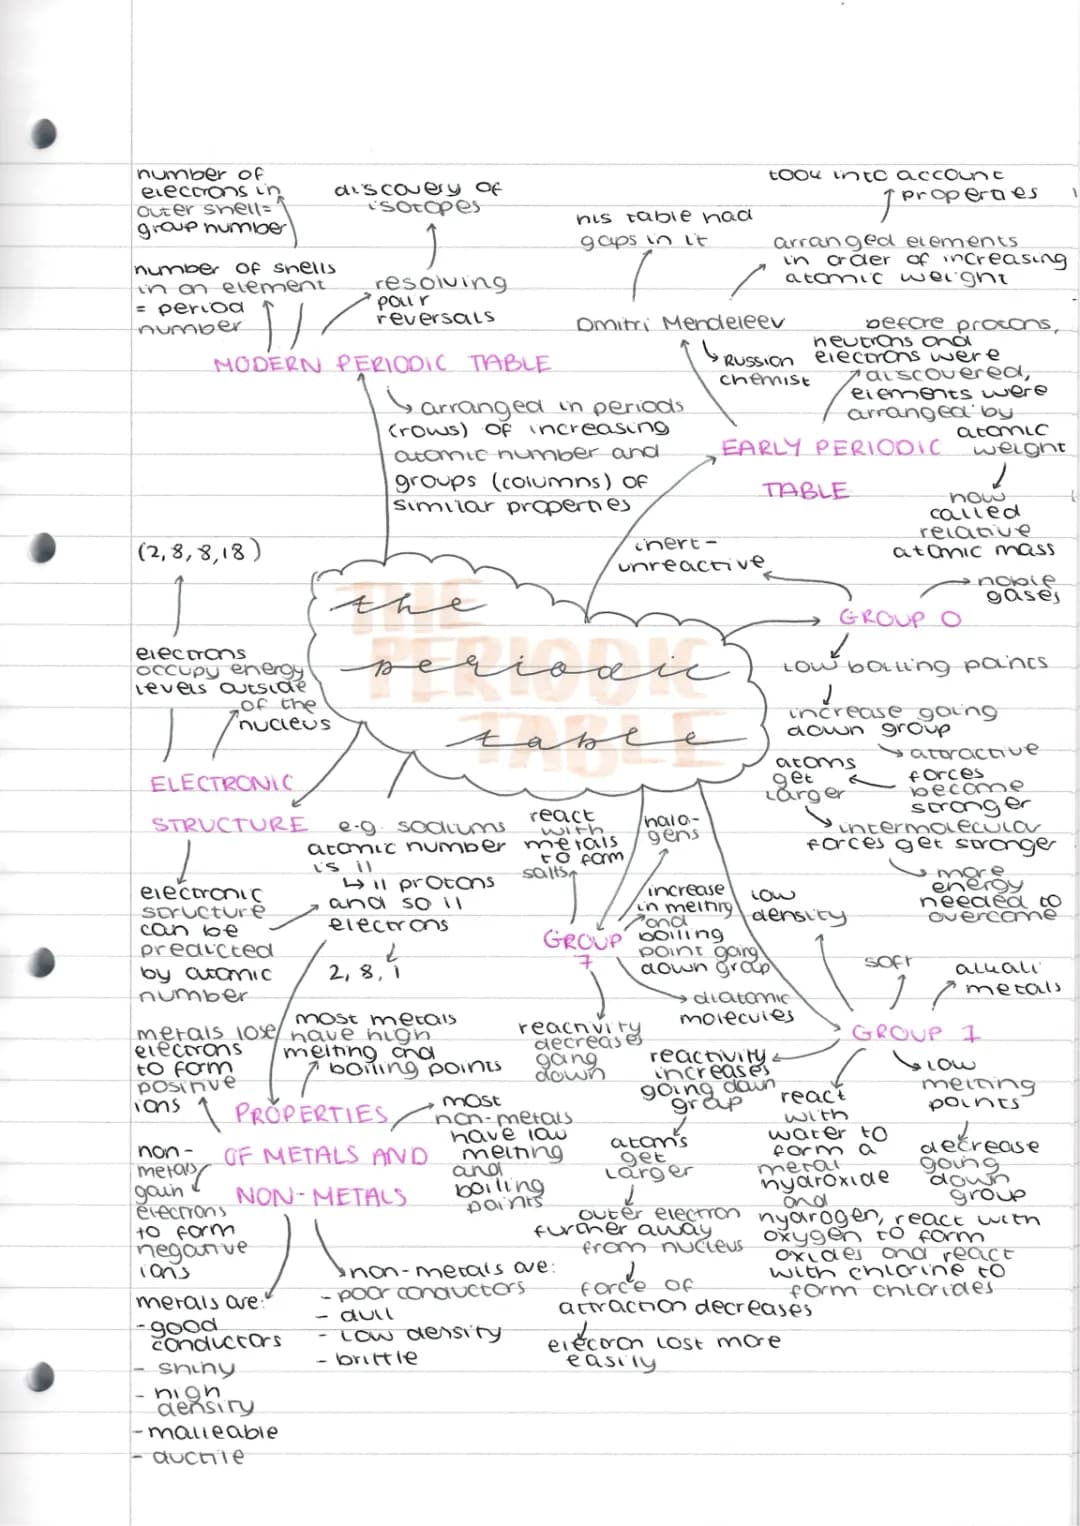 number of
electrons in
outer shell=
group number
number of shells
in an element
= period
number
discovery of
isotopes
resolving
pair
reversals
MODERN PERIODIC TABLE
arranged in periods
(rows) of increasing
atomic number and
groups (columns) of
similar properties
took into account
properties
his table had
gaps in it
arranged elements
in order of increasing
atomic weight
Dmitri Mendeleev
Russian
chemist
before protons,
neutrons and
electrons were
discovered,
elements were
arranged by
atomic
weight
EARLY PERIODIC
TABLE
now
called
relative
atomic mass
inert-
unreactive
noble
gases
GROUP 0
low boiling points
increase going
down group
attractive
forces
become
stronger
atoms
get
larger
intermolecular
forces get stronger
more
energy
needed to
overcome
THE
PERIODIC
TABLE
the
periodic
table
(2,8,8,18)
electrons
occupy energy
levels outside
of the
nucleus
ELECTRONIC
STRUCTURE
electronic
structure
can be
predicted
by atomic
number
e.g. sodiums
atomic number
is 11
↳ 11 protons
and so 11
electrons
2, 8, 1
react
with
metals
to form
salts
halo-
gens
increase
in melting
and
boiling
point going
down group
GROUP
7
diatomic
molecules
reactivity
decreases
going
down
low
density
soft
alkali
metals
GROUP 1
low
melting
points
decrease
going
down
group
reactivity
increases
going down
group
atoms
get
larger
outer electron
further away
from nucleus
force of
attraction decreases
electron lost more
easily
react
with
water to
form a
metal
hydroxide
and
hydrogen, react with
oxygen to form
oxides and react
with chlorine to
form chlorides
metals lose
electrons
to form
positive
ions
most metals
have high
melting and
boiling points
PROPERTIES
OF METALS AND
NON-METALS
most
non-metals
have low
melting
and
boiling
points
non-
metals
gain
electrons
to form
negative
ions
metals are:
-good
conductors
- shiny
- high
density
-malleable
- ductile
non-metals are:
- poor conductors
- dull
- low density
- brittle